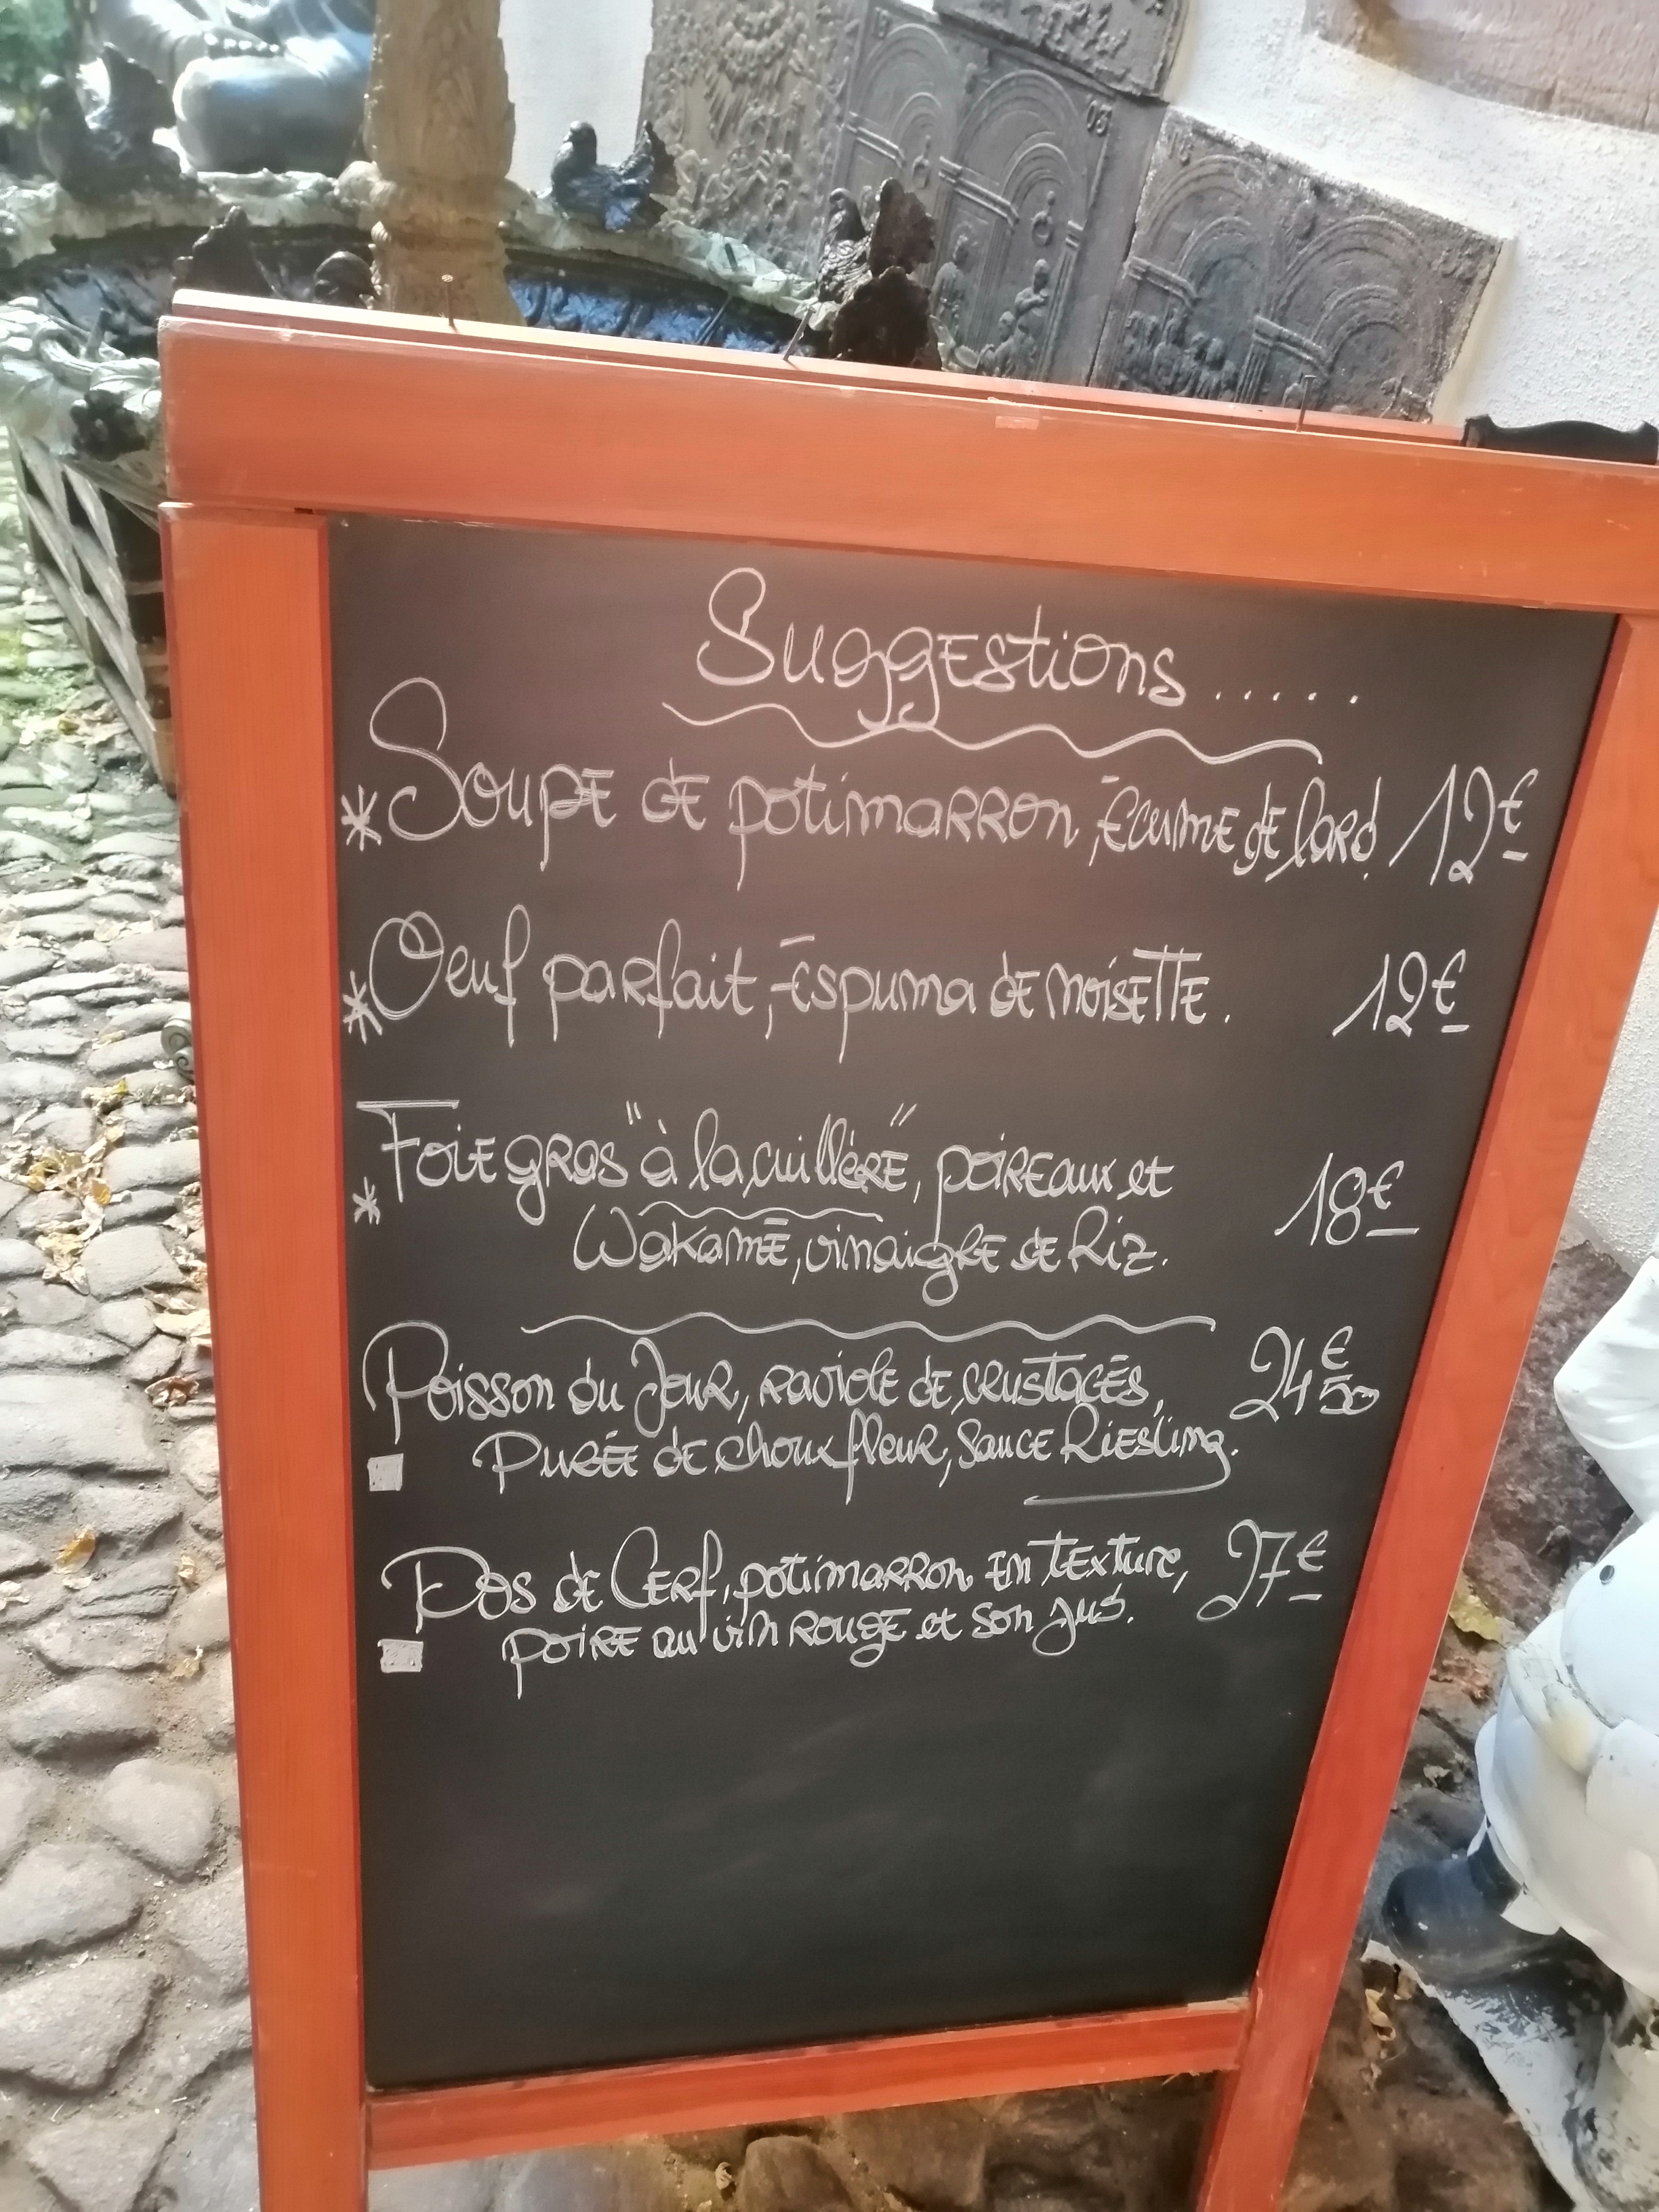 Suggestions.....
* Soupe de potimarron, écume de lard. 12€
* Oeuf parfait, espuma de noisette. 12€
* Foie gras "à la cuillère", poireaux et 18€
Wakamé, vinaigre de Riz.
Poisson du Jour, raviole de crustacés, 24€50
Purée de choux fleur, Sauce Riesling.
Dos de Cerf, potimarron en texture, 27€
poire au vin rouge et son jus.